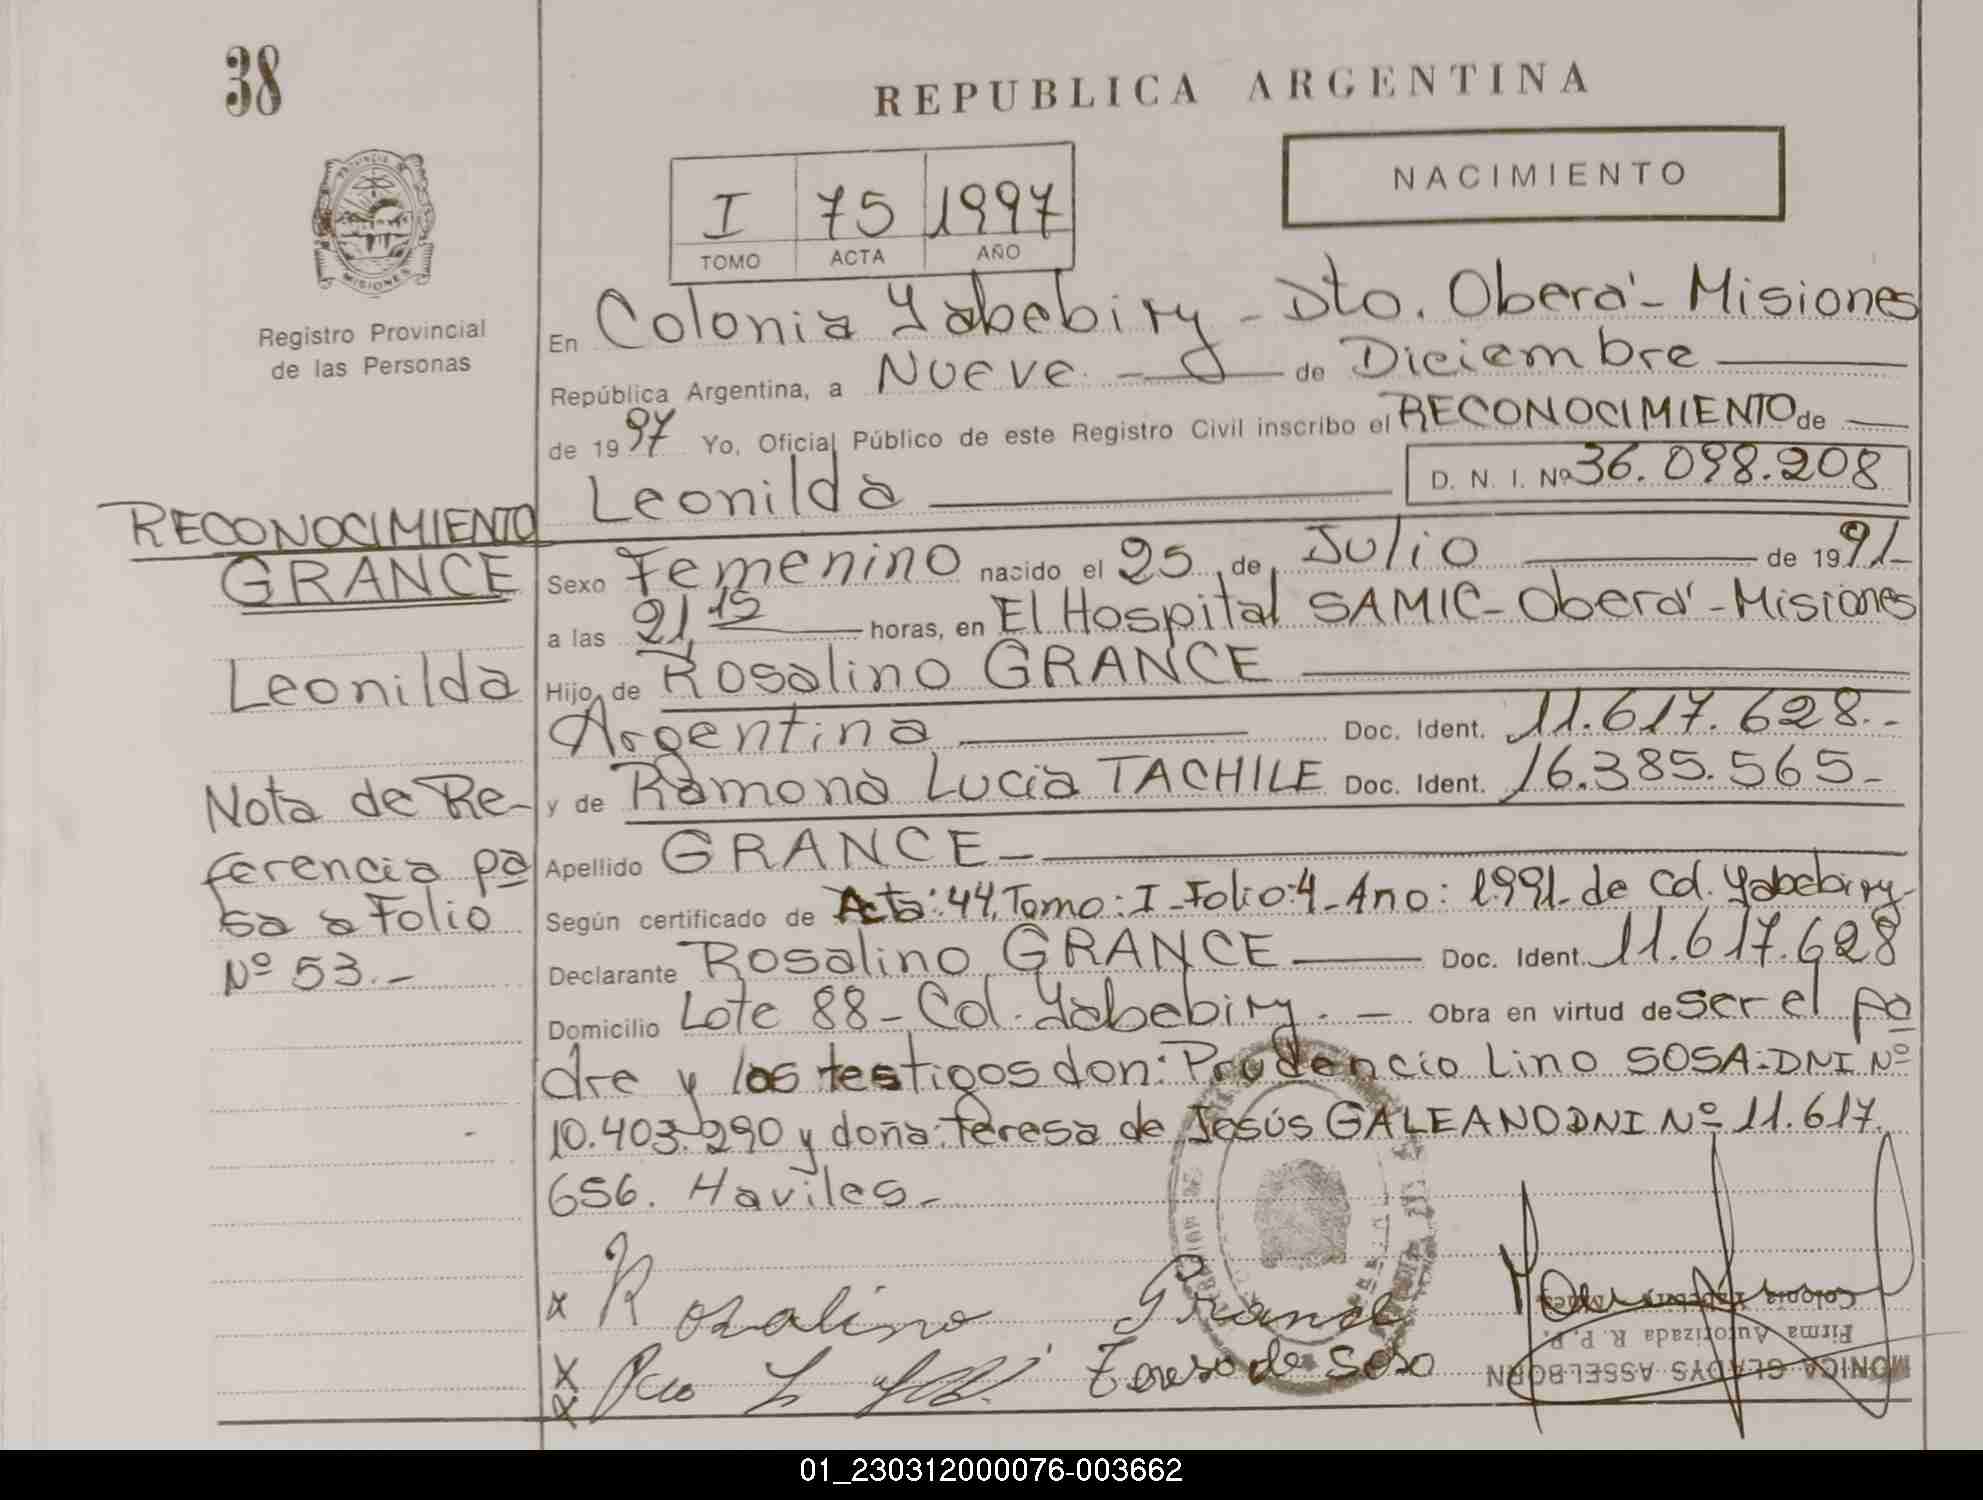 38
REPUBLICA ARGENTINA
NACIMIENTO
I 75 1997
TOMO ACTA AÑO
PROVINCIA DE
MISIONES
Registro Provincial
de las Personas
En Colonia Yabebiry - Dto. Oberá - Misiones
República Argentina, a Nueve - de Diciembre
de 1997 Yo, Oficial Público de este Registro Civil inscribo el RECONOCIMIENTO de
Leonilda D. N. I. Nº 36.098.208
RECONOCIMIENTO
GRANCE
Leonilda
Nota de Re-
ferencia pa
sa a Folio
Nº 53.-
Sexo Femenino nacido el 25 de Julio de 1991-
a las 21,15 horas, en El Hospital SAMIC - Oberá - Misiones
Hijo de Rosalino GRANCE
Argentina Doc. Ident. 11.617.628.-
y de Ramona Lucia TACHILE Doc. Ident. 16.385.565-
Apellido GRANCE-
Según certificado de Acta: 44, Tomo: I - Folio: 4 - Ano: 1.991- de Cd. Yabebiry-
Declarante Rosalino GRANCE Doc. Ident. 11.617.628
Domicilio Lote 88 - Col. Yabebiry. - Obra en virtud de ser el pa
dre y los testigos don: Prudencio Lino SOSA: DNI Nº
10.403.290 y doña: Teresa de Jesús GALEANO DNI Nº 11.617.
656. Haviles.-
x Rosalino Grance
x
x Teresa de Sosa
MONICA GLADYS ASSELBORN
Firma Autorizada R. P. P.
Colonia Yabebiry
01_230312000076-003662